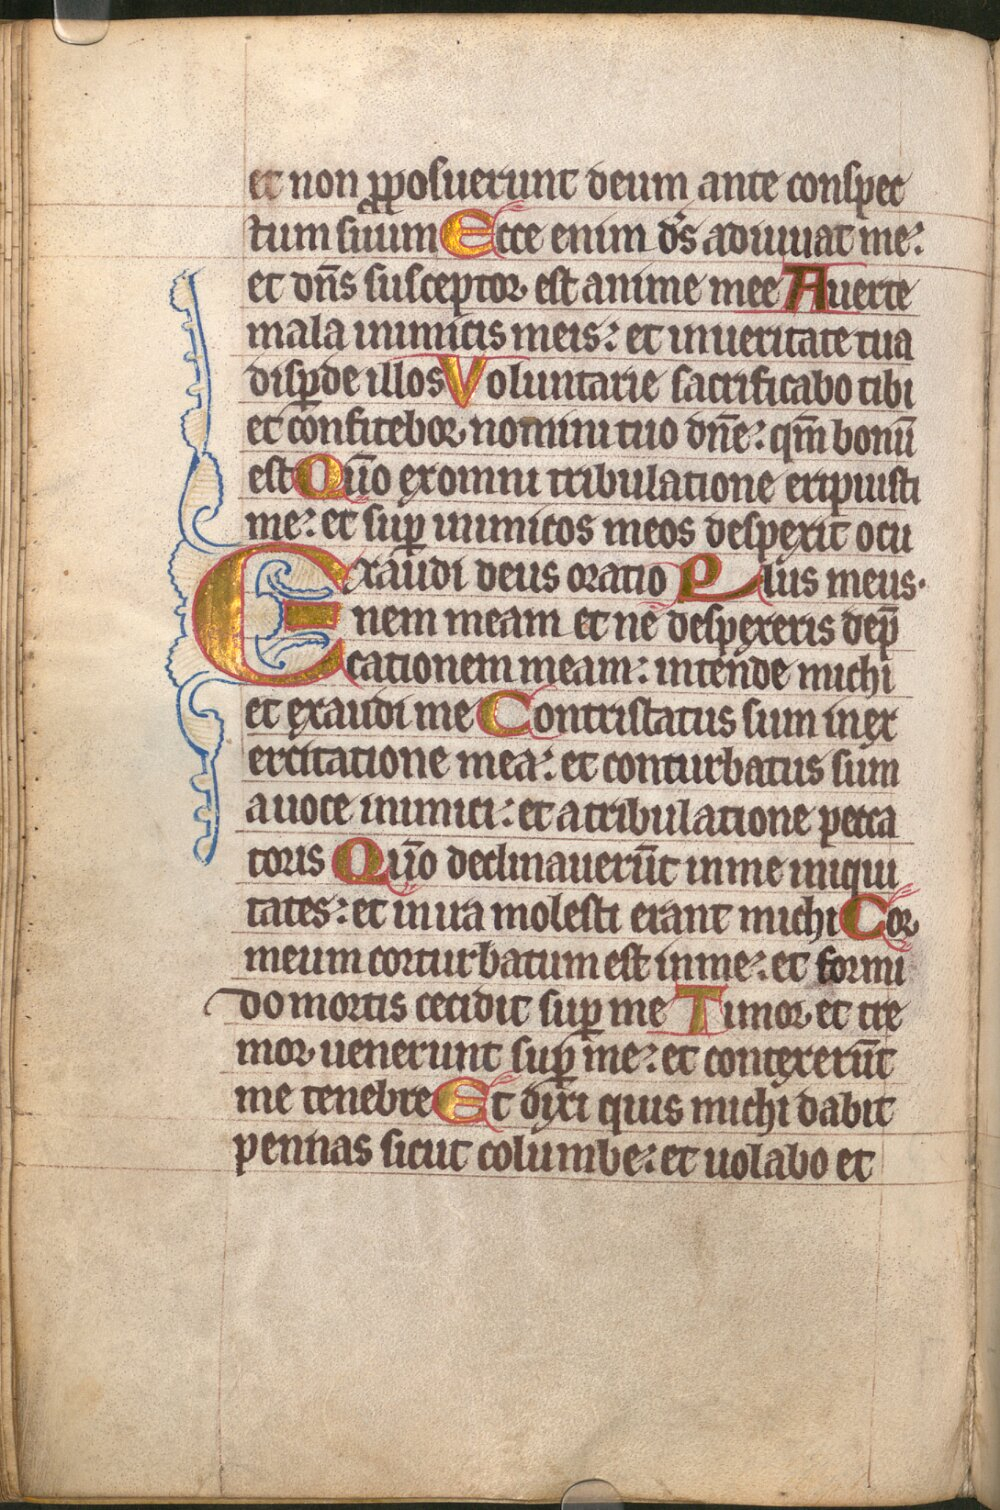 et non ꝓposuerunt deum ante conspec
tum suum Ecce enim ds̄ adiuuat me:
et dn̄s susceptor est anime mee Auerte
mala inimicis meis: et in ueritate tua
disꝑde illos Voluntarie sacrificabo tibi
et confitebor nomini tuo dn̄e: qm̄ bonū
est Qūo ex omni tribulatione eripuisti
me: et suꝑ inimicos meos despexit ocu
Exaudi deus oratio lus meus.
nem meam et ne despexeris dep̄
cationem meam: intende michi
et exaudi me Contristatus sum in ex
ercitatione mea: et conturbatus sum
a uoce inimici: et a tribulatione pecca
toris Qūo declinauerūt in me iniqui
tates: et in ira molesti erant michi Cor
meum corturbatum est in me: et formi
do mortis cecidit suꝑ me Timor et tre
mor uenerunt suꝑ me: et contexerūt
me tenebre Et dixi quis michi dabit
pennas sicut columbe: et uolabo et